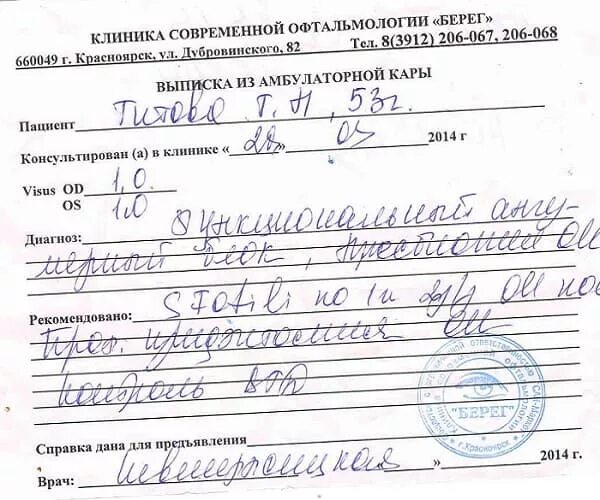 КЛИНИКА СОВРЕМЕННОЙ ОФТАЛЬМОЛОГИИ «БЕРЕГ»
660049 г. Красноярск, ул. Дубровинского, 82 Тел. 8(3912) 206-067, 206-068
ВЫПИСКА ИЗ АМБУЛАТОРНОЙ КАРЫ
Пациент Титова Т. Н, 53г.
Консультирован (а) в клинике «28» 03 2014 г
Visus OD 1,0.
OS 1.0
Диагноз: функциональный ангу-
мерный блок, пресбиопия OU
Рекомендовано: по 1к 2р/д OU
проф. иридэктомия OU
контроль ВГД
"БЕРЕГ"
г.Красноярск
Справка дана для предъявления
Врач: » 2014 г.